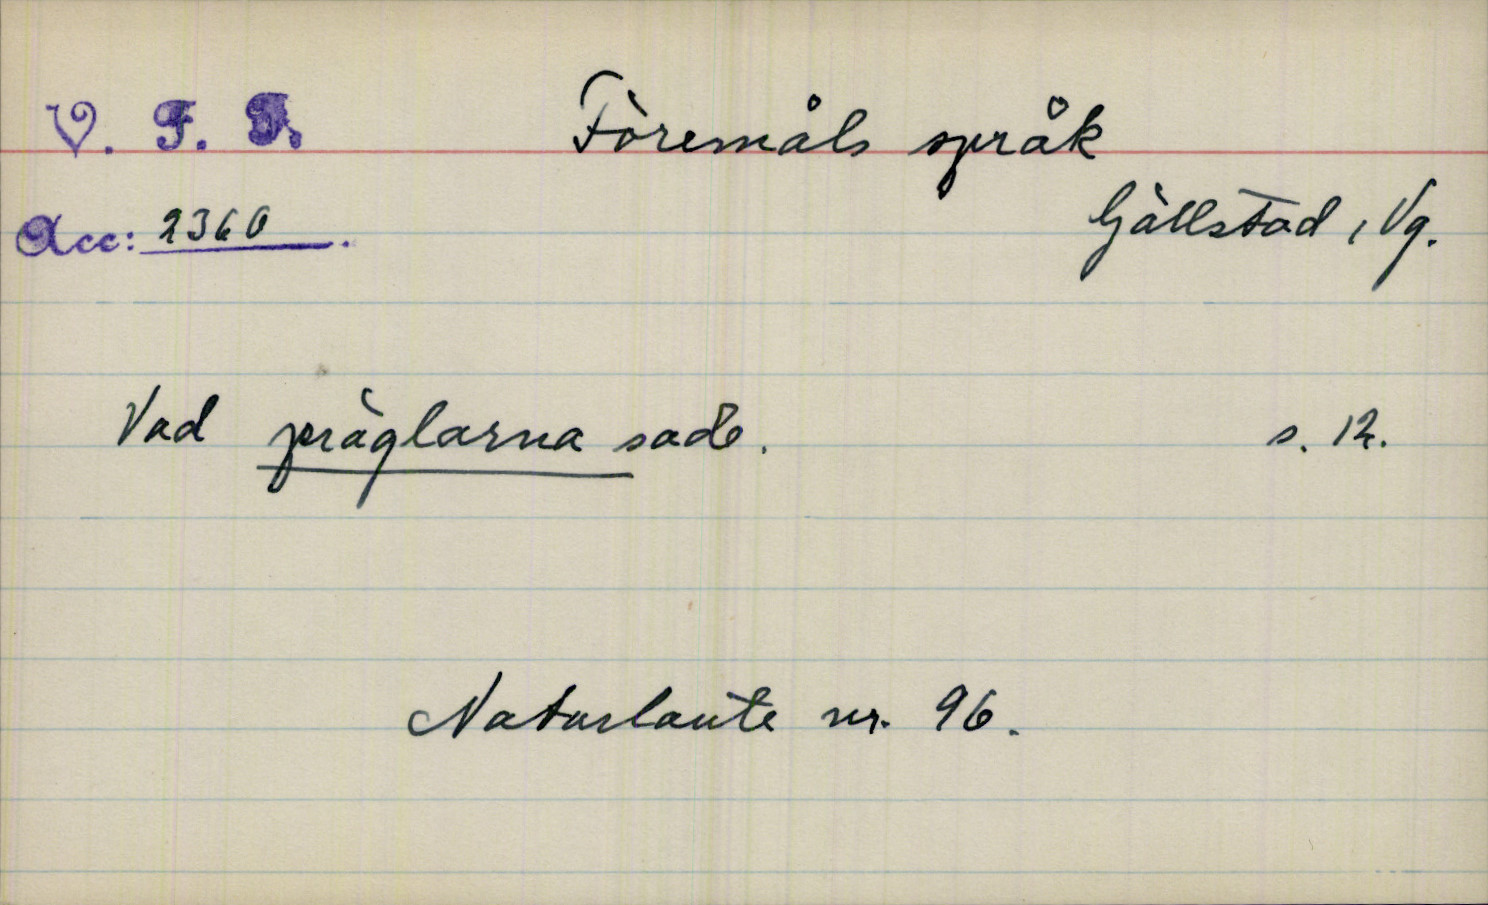 V. F. F. Föremåls språk
Acc: 2360. Gällstad, Vg.
Vad präglarna sade. s. 12.
Naturlaute nr. 96.